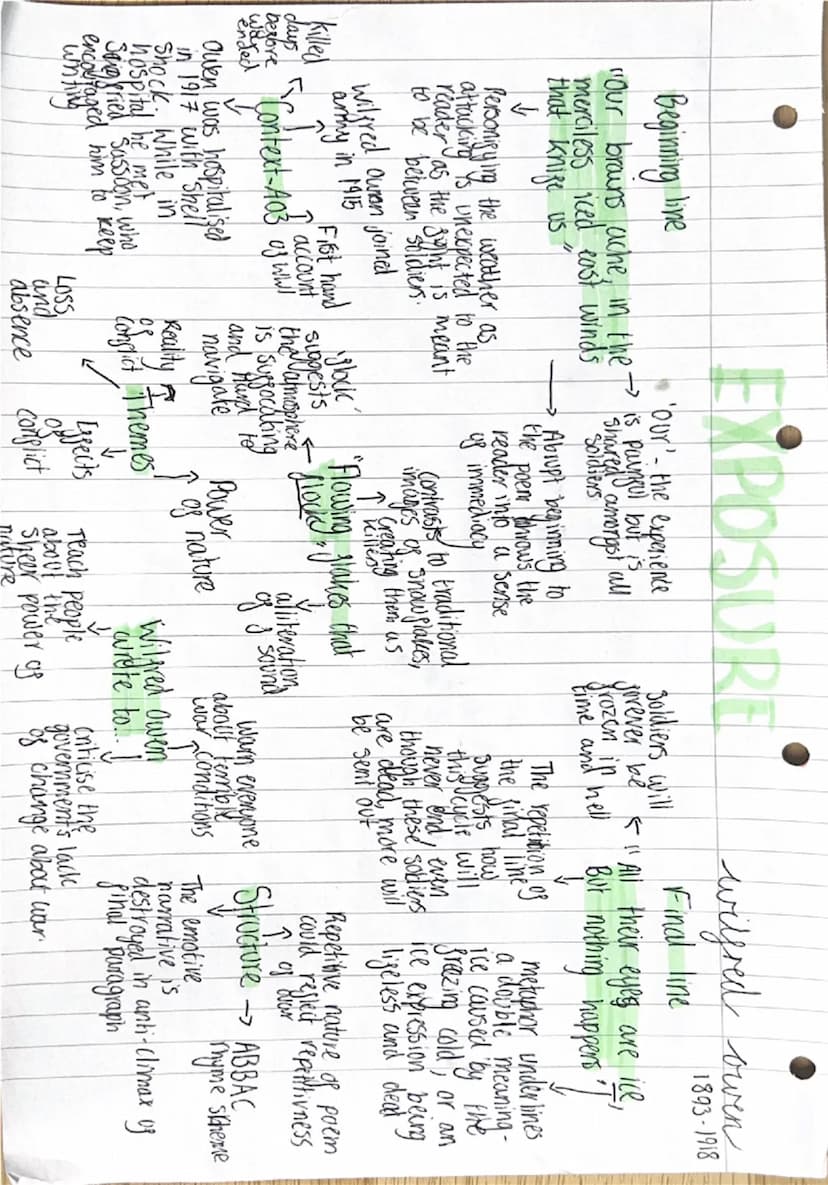 EXPOSURE
Wilfred Owen
1893-1918
Beginning line
"Our brains ache, in the
merciless iced east winds
that knife us"
'Our' - the experience
is painful but is
shared amongst all
soldiers
Personifying the weather as
attacking is unexpected to the
reader as the fight is meant
to be between soldiers.
Abrupt beginning to
the poem throws the
reader into a sense
of immediacy
Final line
"All their eyes are ice,
But nothing happens."
soldiers will
forever be
frozen in
time and hell
The repetition of
the final line
suggests how
this cycle will
never end even
though these soldiers
are dead, more will
be sent out
metaphor underlines
a double meaning-
ice caused by the
freezing cold, or an
ice expression being
lifeless and dead
"Flowing flakes that
flock"
contrasts to traditional
images of snowflakes,
creating them as
killers
'flock'
suggests
the atmosphere
is suffocating
and hard to
navigate
alliteration
of f sound
Context-A03
Wilfred Owen joined
army in 1915
First hand
account
of WWI
killed
days
before
war
ended
Owen was hospitalised
in 1917 with shell
shock. While in
hospital he met
Siegfried Sassoon, who
encouraged him to keep
writing
Themes
Reality
of
conflict
Power
of nature
Loss
and
absence
Effects
of
conflict
Wilfred Owen
wrote to...
Warn everyone
about terrible
war conditions
Teach people
about the
sheer power of
nature
critisise the
government's lack
of change about war.
Structure
Repetitive nature of poem
could reflect repetitivness
of war
ABBAC
rhyme scheme
The emotive
narrative is
destroyed in anti-climax of
final paragraph